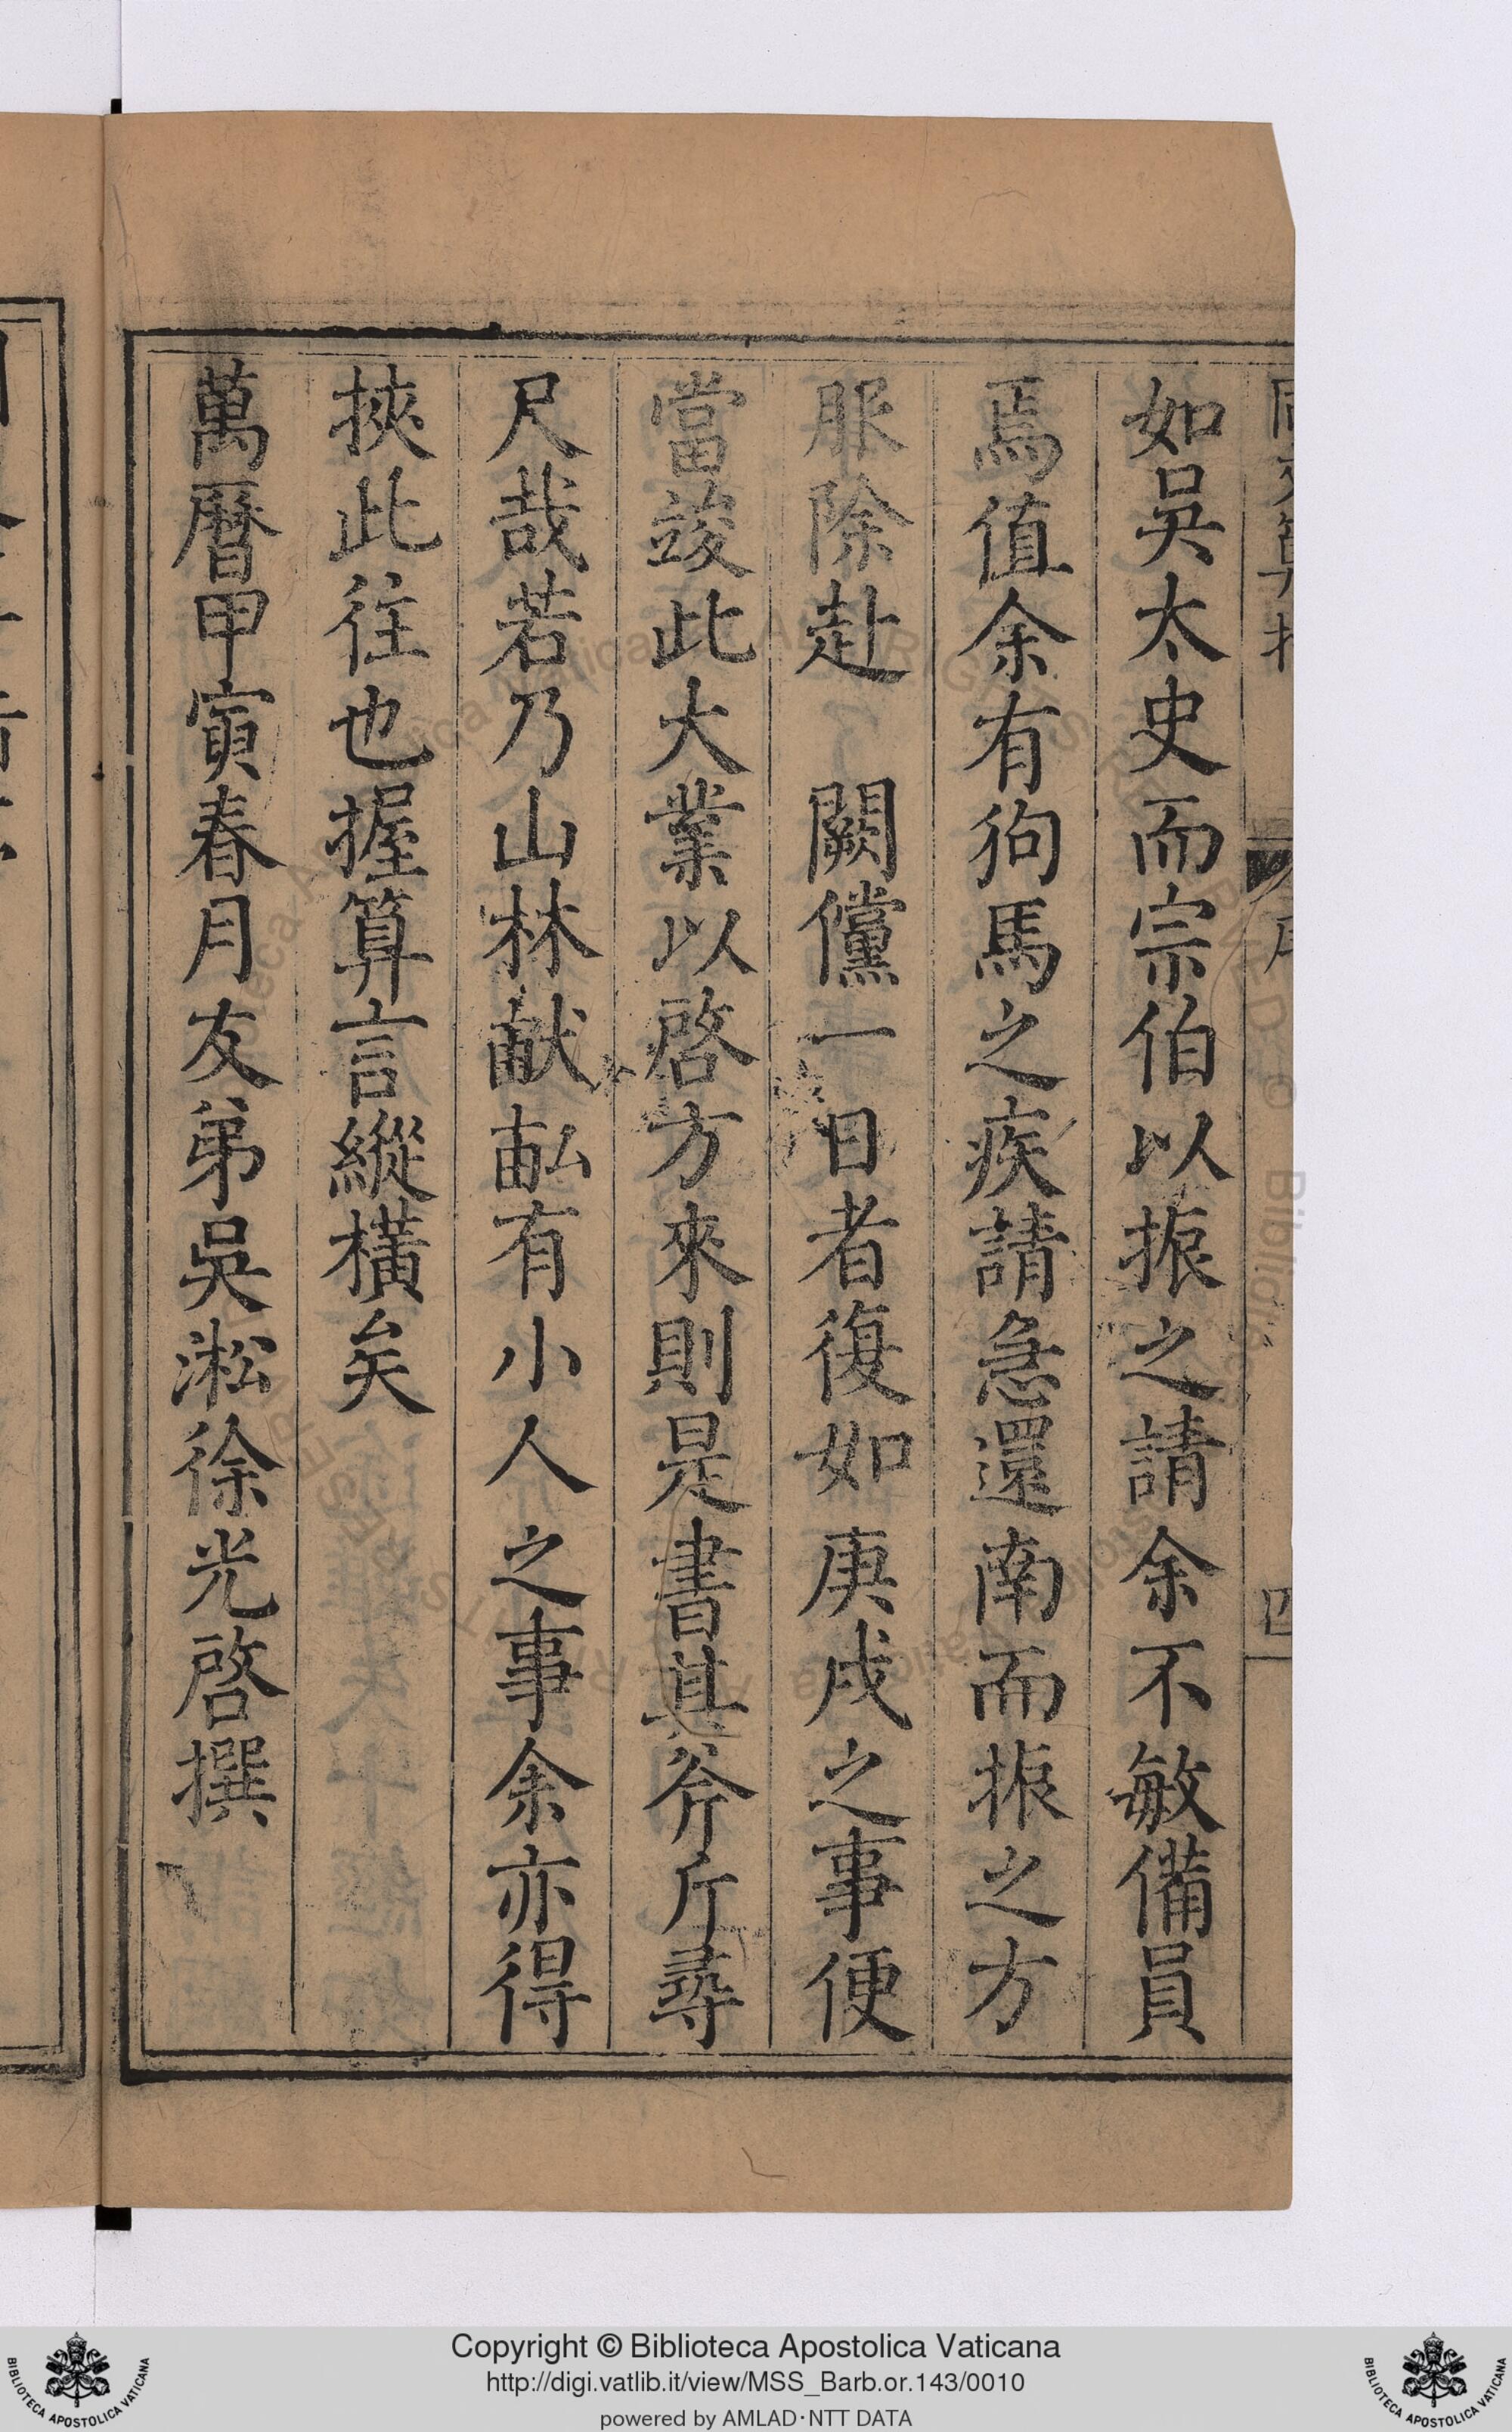 如吳太史而宗伯以振之請余不敏備員
焉值余有狗馬之疾請急還南而振之方
服除赴 闕儻一日者復如庚戌之事便
當竣此大業以啓方來則是書其斧斤尋
尺哉若乃山林畎畝有小人之事余亦得
挾此往也握算言縱橫矣
萬曆甲寅春月友弟吳淞徐光啓撰
Copyright © Biblioteca Apostolica Vaticana
http://digi.vatlib.it/view/MSS_Barb.or.143/0010
powered by AMLAD·NTT DATA
BIBLIOTECA APOSTOLICA VATICANA
BIBLIOTECA APOSTOLICA VATICANA